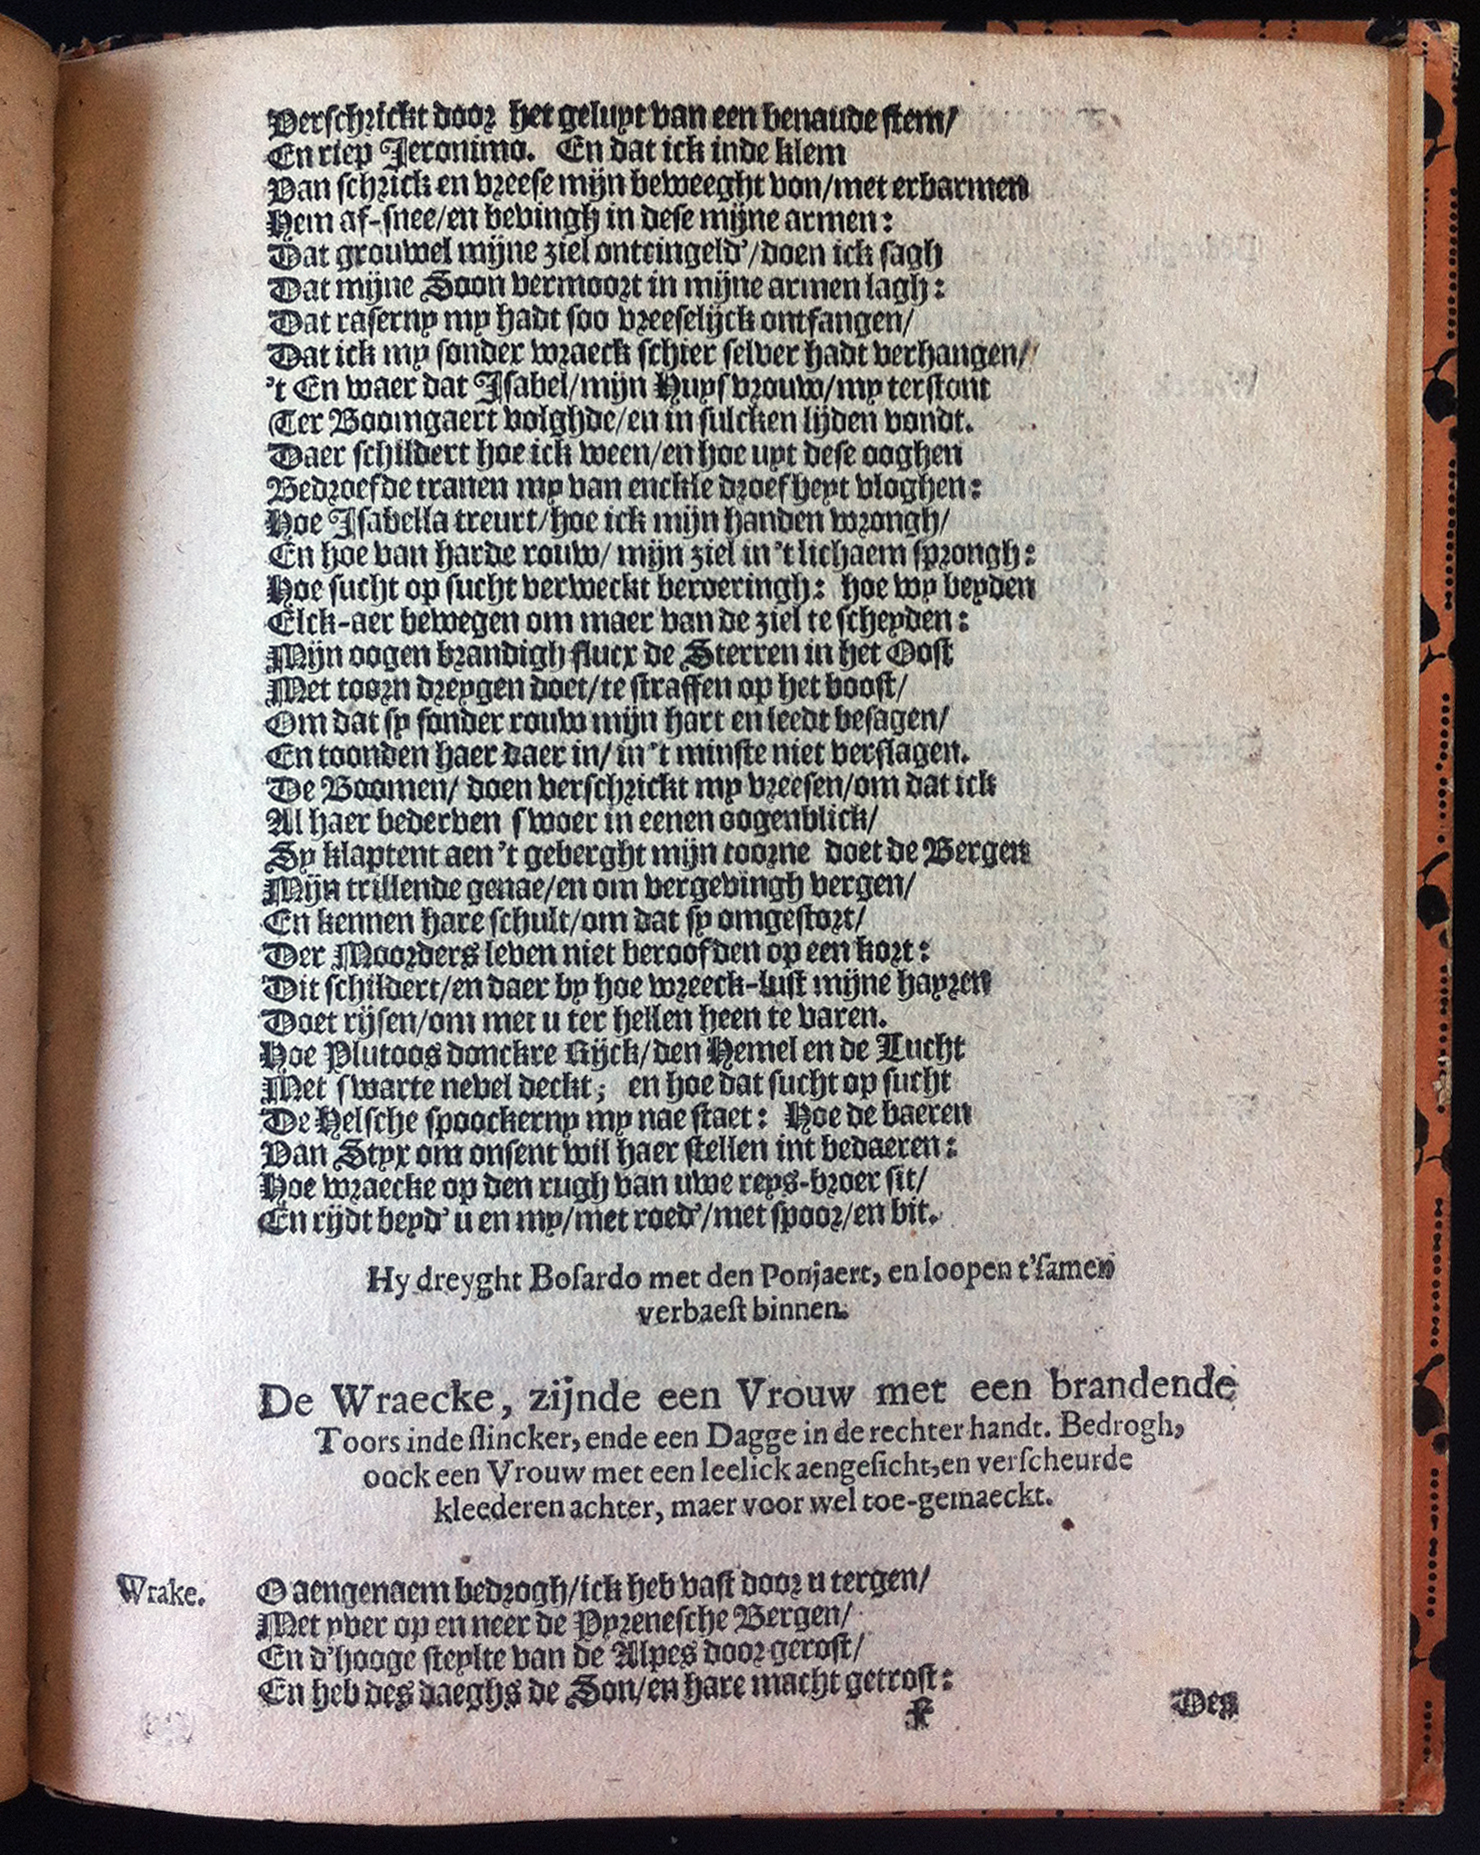 Verschrickt door het geluyt van een benaude stem/
En riep Jeronimo. En dat ick inde klem
Van schrick en vreese mijn beweeght von/met erbarmen
Hem af-snee/en bevingh in dese mijne armen:
Dat grouwel mijne ziel ontringeld'/doen ick sagh
Dat mijne Soon vermoort in mijne armen lagh:
Dat raserny my hadt soo vreeselijck ontfangen/
Dat ick my sonder wraeck schier selver hadt verhangen/
't En waer dat Isabel/mijn Huysvrouw/my terstont
Ter Boomgaert volghde/en in sulcken lijden vondt.
Daer schildert hoe ick ween/en hoe uyt dese ooghen
Bedroefde tranen my van enckle droefheyt vloghen:
Hoe Isabella treurt/hoe ick mijn handen wrongh/
En hoe van harde rouw/ mijn ziel in 't lichaem sprongh:
Hoe sucht op sucht verweckt beroeringh: hoe wy beyden
Elck-aer bewegen om maer van de ziel te scheyden:
Mijn oogen brandigh flucx de Sterren in het Oost
Met toorn dreygen doet/te straffen op het boost/
Om dat sy sonder rouw mijn hart en leedt besagen/
En toonden haer daer in/in 't minste niet verslagen.
De Boomen/ doen verschrickt my vreesen/om dat ick
Al haer bederven swoer in eenen oogenblick/
Sy klaptent aen 't geberght mijn toorne doet de Bergen
Mijn trillende genae/en om vergevingh vergen/
En kennen hare schult/om dat sy omgestort/
Der Moorders leven niet beroofden op een kort:
Dit schildert/en daer by hoe wreeck-lust mijne hayren
Doet rijsen/om met u ter hellen heen te varen.
Hoe Plutoos donckre Rijck/den Hemel en de Lucht
Met swarte nevel deckt; en hoe dat sucht op sucht
De Helsche spoockerny my nae staet: Hoe de baeren
Van Styx om onsent wil haer stellen int bedaeren:
Hoe wraecke op den rugh van uwe reys-broer sit/
En rijdt beyd' u en my/met roed'/met spoor/en bit.
Hy dreyght Bosardo met den Ponjaert, en loopen t'samen
verbaest binnen.
De Wraecke, zijnde een Vrouw met een brandende
Toors inde slincker, ende een Dagge in de rechter handt. Bedrogh,
oock een Vrouw met een leelick aengesicht, en verscheurde
kleederen achter, maer voor wel toe-gemaeckt.
Wrake. O aengenaem bedrogh/ick heb vast door u tergen/
Met yver op en neer de Pyrenesche Bergen/
En d'hooge steylte van de Alpes door gerost/
En heb des daeghs de Son/en hare macht getrost:
F Den